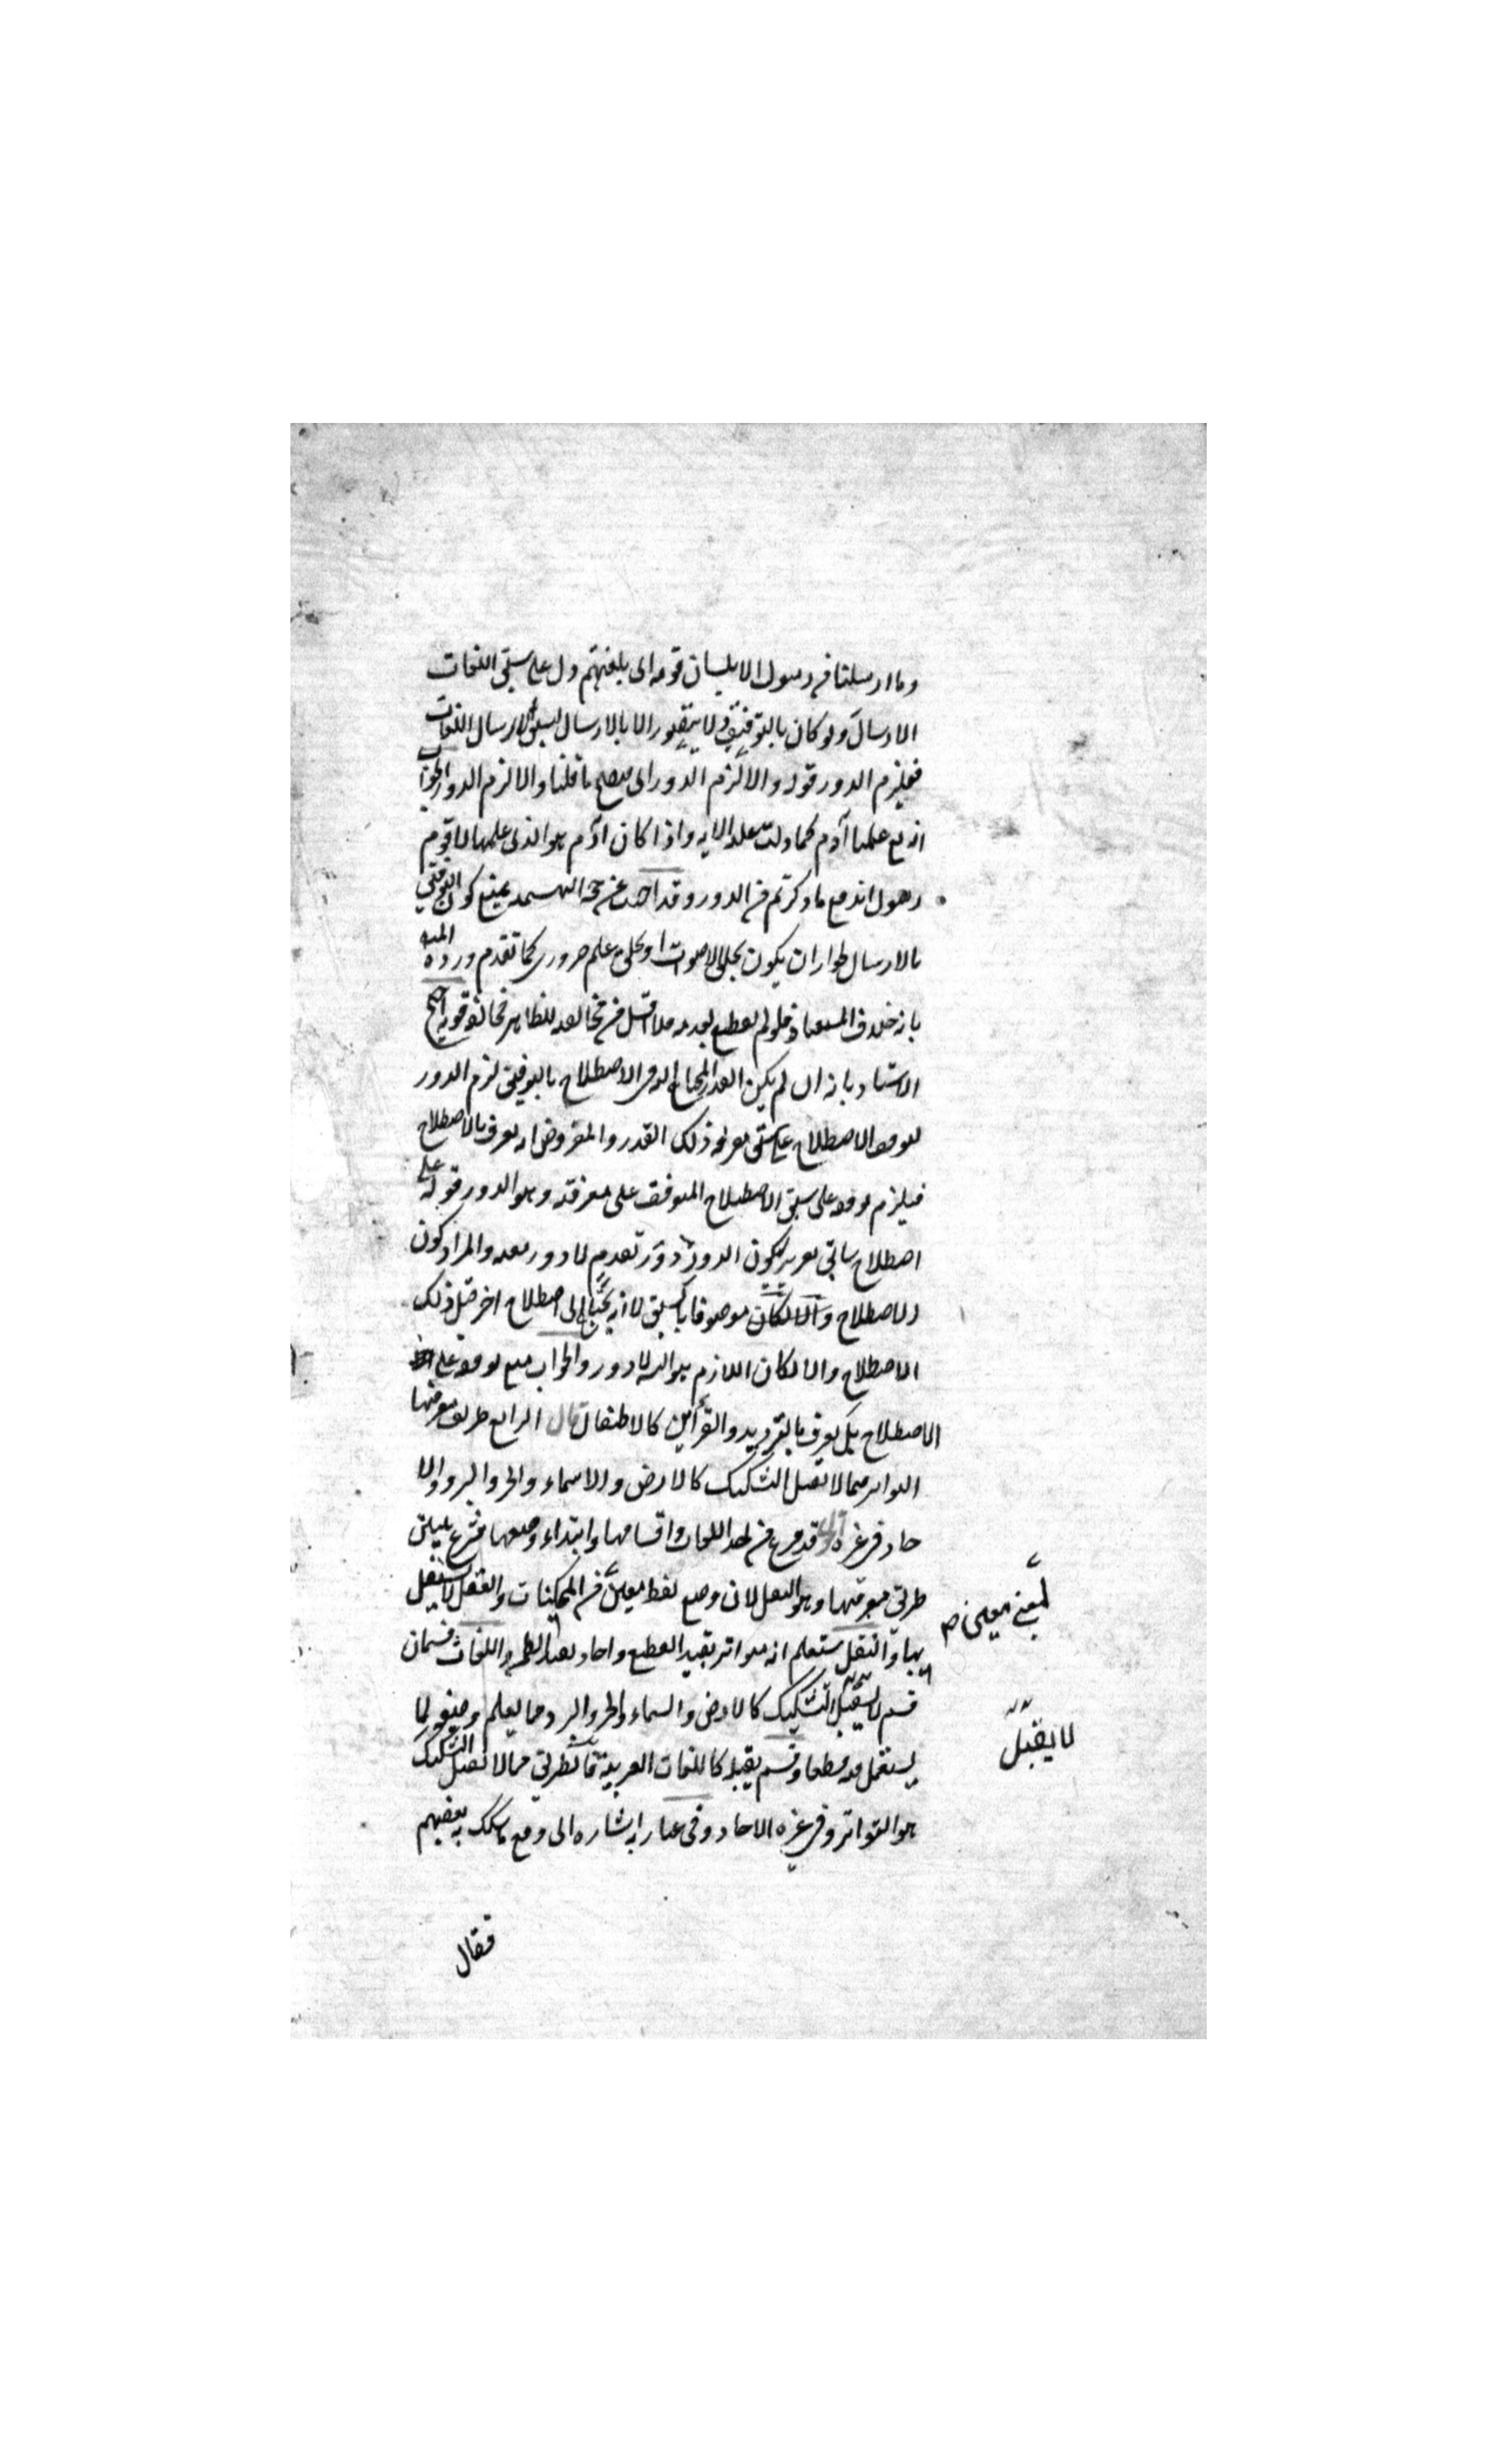 وما ارسلنا من رسول الا بلسان قومه اى بلغتهم دل على سبق اللغات
الارسال ولو كان بالتوقيف ولا يتصور الا بالارسال لسبق الارسال اللغات
فيلزم الدور قوله والا لزم الدور اى يصح ما قلنا والا لزم الدور الجواب
انه تع علمها آدم كما دلت عليه الايه واذا كان آدم هو الذى علمها لاقوم
رسول اندفع ما ذكرتم من الدور وقد بمنع كون التوقيف
بالارسال لجواز ان يكون بخلق الاصوات او بخلق علم ضرورى كما تقدم ورده
بانه خلاف المعتاد فلو لم يقطع بعدمه فلا اقل من مخالفه للظاهر مخالفة قويه احتج
الاستاد بانه ان لم يكن القدر المحتاج اليه فى الاصطلاح بالتوقيف لزم الدور
لتوقف الاصطلاح على سبق معرفة ذلك القدر والمفروض انه يعرف بالاصطلاح
فيلزم توقفه على سبق الاصطلاح المتوقف على معرفته وهو الدور قوله على
اصطلاح سابق لكون الدور دور تقدم لا دور معه والمراد كون
الاصطلاح والا لكان موصوفا بالسبق لا انه يحتاج الى اصطلاح اخر قبل ذلك
الاصطلاح والا لكان اللازم هو التس لا دور والجواب منع توقفه على
الاصطلاح بل يعرف بالترديد والقرائن كالاطفال قال الرابع طريق معرفتها
التواتر مما لا تقبل التشكيك كالارض والاسماء والحر والبرد والا
حاد فى غيره اقول قد فرغ من اللغات واقسامها وابتداء وضعها فشرع يبين
طريق معرفتها وهو النقل لان وضع لفظ معين من الممكنات والعقل لا يستقل
بها والنقل ستعلم انه متواتر يفيد القطع واحاد يفيد الظن واللغات قسمان
قسم لا يقبل التشكيك كالارض والسماء والحر والبرد مما يعلم وضعه لما
يستعمل فيه قطعا وقسم يقبله كاللغات العربية فالطريق مما لا تقبل التشكيك
هو التواتر وفى غيره الاحاد وفى عبارته اشاره الى دفع ما سلك بعضهم
لمعنى معين صح
لا يقبل
فقال